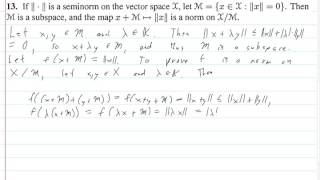 13. If ‖·‖ is a seminorm on the vector space X, let M = {x ∈ X : ‖x‖ = 0}. Then
M is a subspace, and the map x + M ↦ ‖x‖ is a norm on X/M.
Let x, y ∈ M and λ ∈ K. Then ‖x + λy‖ ≤ ‖x‖ + |λ|·‖y‖
= 0, so x + λy ∈ M, and thus M is a subspace.
Let f(x + M) = ‖x‖. To prove f is a norm on
X/M, let x, y ∈ M, λ ∈ K. Then
f((x+M)+(y+M)) = f(x+y+M) = ‖x+y‖ ≤ ‖x‖ + ‖y‖,
f(λ(x+M)) = f(λx + M) = ‖λx‖ = |λ|